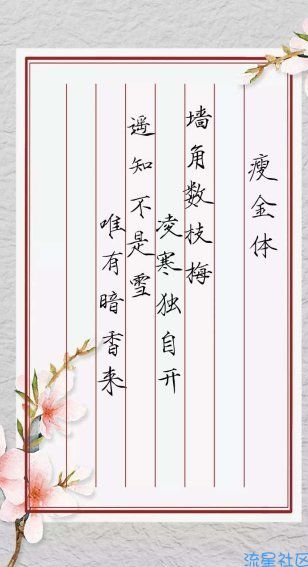 瘦金体
墙角数枝梅
凌寒独自开
遥知不是雪
唯有暗香来
流星社区